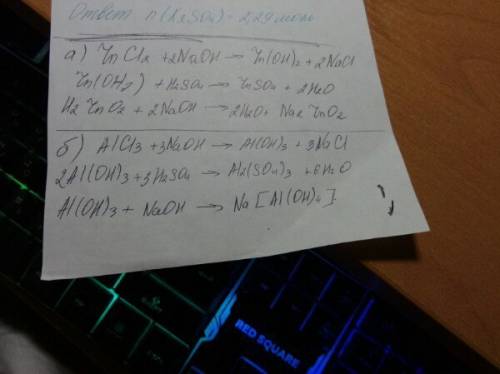 Ответ n(K2SO4) - 2,29 моль
а) ZnCl2 + 2NaOH → Zn(OH)2 + 2NaCl
Zn(OH2) + H2SO4 → ZnSO4 + 2H2O
H2ZnO2 + 2NaOH → 2H2O + Na2ZnO2
б) AlCl3 + 3NaOH → Al(OH)3 + 3NaCl
2Al(OH)3 + 3H2SO4 → Al2(SO4)3 + 6H2O
Al(OH)3 + NaOH → Na[Al(OH)4]
RED SQUARE